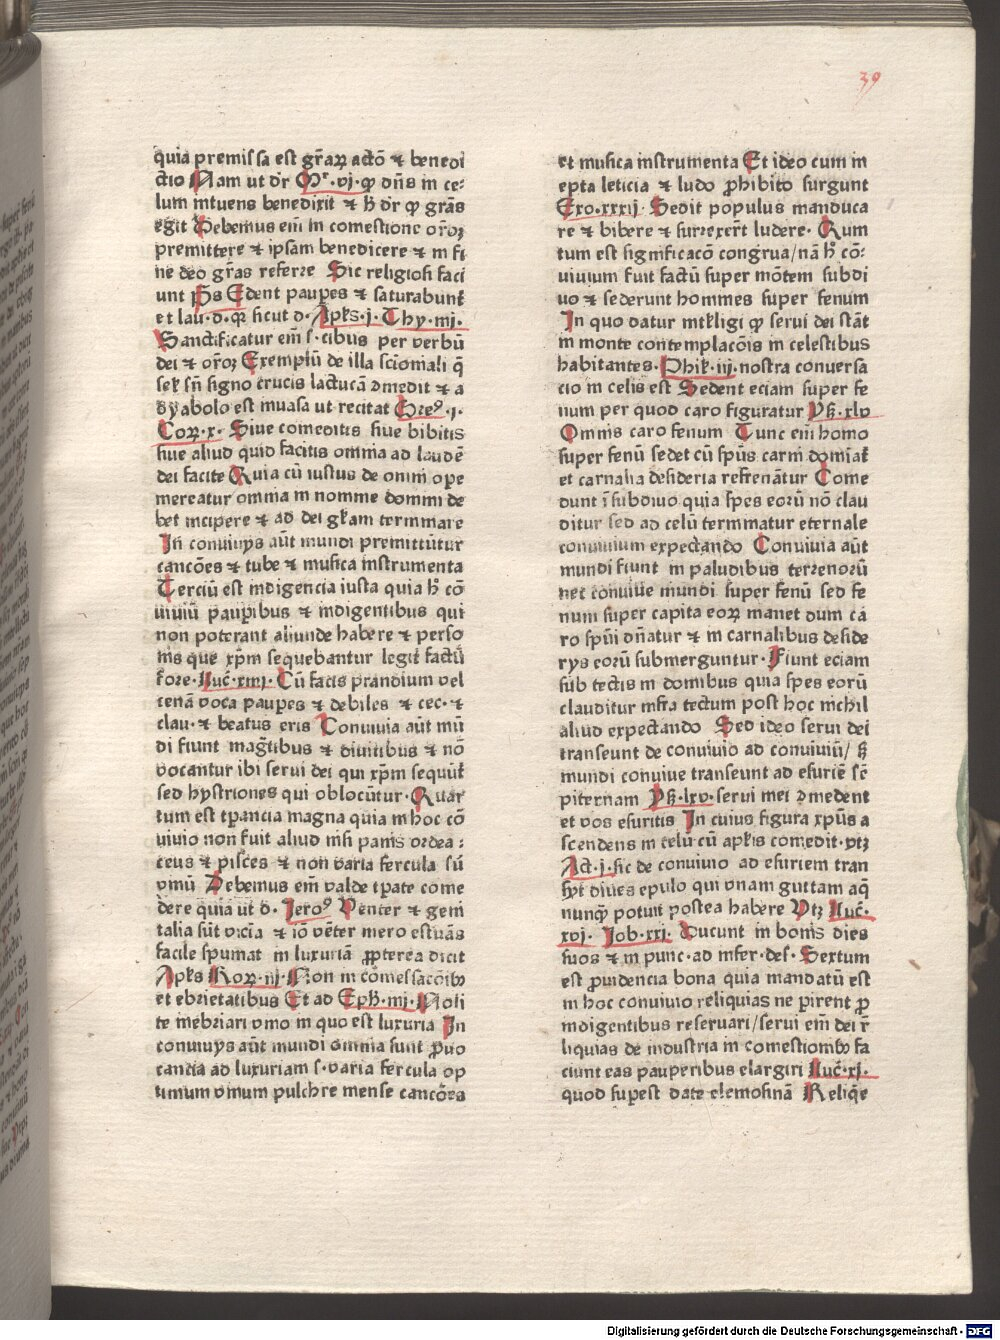 39
quia premissa est gr̄aꝝ actō ⁊ benedi
ctio Nam ut dr̄ Mr̄.vj. ꝙ dn̄s in ce⸗
lum intuens benedixit ⁊ h̄ dr̄ ꝙ grās
egit Debemus em̄ in comestione orōꝫ
premittere ⁊ ipsam benedicere ⁊ in fi
ne deo grās referre Sic religiosi faci
unt p̄s Edent paupes ⁊ saturabunt̄
et lau.d.qꝛ sicut d. Apl̄s.j.Thy.iiij.
Sanctificatur em̄ s. cibus per verbū
dei ⁊ orōꝫ Exemplū de illa sc̄iomali q̄
sel̄ sn̄ signo crucis lactucā ꝯmedit ⁊ a
dyabolo est inuasa ut recitat Greꝰ.j.
Coꝝ.x. Siue comeditis siue bibitis
siue aliud quid facitis omnia ad laudē
dei facite Quia cū iustus de omni ope
mereatur omnia in nomine domini de
bet incipere ⁊ ad dei gl̄iam terminare
In conuiuijs aūt mundi premittūtur
cancōes ⁊ tube ⁊ musica instrumenta
Terciū est indigencia iusta quia h̄ cō
uiuiū paupibus ⁊ indigentibus qui
non poterant aliunde habere ⁊ perso
nis que xp̄m sequebantur legit̄ factū
fore. Luc̄.xiiij. Cū facis prandium vel
cenā voca paupes ⁊ debiles ⁊ cec. ⁊
clau. ⁊ beatus eris Conuiuia aūt mū
di fiunt maḡtibus ⁊ diuitibus ⁊ nō
vocantur ibi serui dei qui xp̄m sequūt̄
sed hystriones qui oblocūtur. Quar
tum est tp̄ancia magna quia in hoc cō
uiuio non fuit aliud nisi panis ordea⸗
ceus ⁊ pisces ⁊ non varia fercula sn̄
vinū Debemus em̄ valde tp̄ate come
dere quia ut d. Jeroꝰ Venter ⁊ geni
talia sūt vicia ⁊ iō vēter mero estuās
facile spumat in luxuriā ꝓpterea dicit
Apl̄s Roꝝ.iij. Non in comessacōibꝫ
et ebrietatibus Et ad Eph̄.iiij. Noli
te inebriari vino in quo est luxuria In
conuiuijs aūt mundi omnia sunt ꝓuo
cancia ad luxuriam s. varia fercula op
timum vinum pulchre mense cancōes
et musica instrumenta Et ideo cum in
epta leticia ⁊ ludo ꝓhibito surgunt
Exo.xxxij. Sedit populus manduca
re ⁊ bibere ⁊ surrexer̄t ludere. Quin
tum est significacō congrua/nā h̄ cō⸗
uiuium fuit factū super mōtem subdi
uo ⁊ sederunt homines super fenum
In quo datur intelligi ꝙ serui dei stāt
in monte contemplacōis in celestibus
habitantes. Phil̄.iij. nostra conuersa
cio in celis est Sedent eciam super fe
num per quod caro figuratur Ys̄.xlv
Omnis caro fenum Tunc em̄ homo
super fenū sedet cū spūs carni domiat̄
et carnalia desideria refrenātur Come
dunt ī subdiuo quia spes eorū nō clau
ditur sed ad celū terminatur eternale
conuiuium expectando Conuiuia aūt
mundi fiunt in paludibus terrenorū
nec conuiue mundi super fenū sed fe
num super capita eoꝝ manet dum ca
ro spūi dn̄atur ⁊ in carnalibus deside
rys eorū submerguntur. Fiunt eciam
sub tectis in domibus quia spes eorū
clauditur infra tectum post hoc nichil
aliud expectando Sed ideo serui dei
transeunt de conuiuio ad conuiuiū/ s̄
mundi conuiue transeunt ad esuriē sē
piternam Ys̄.lxv. serui mei ꝯmedent
et vos esuritis In cuius figura xp̄us a
scendens in celū cū apl̄is comedit. vtꝫ
Act.j. sic de conuiuio ad esuriem tran
syt diues epulo qui vnam guttam aq̄
nunqꝫ potuit postea habere Vtꝫ Luc̄.
xvj. Job.xxj. Ducunt in bonis dies
suos ⁊ in punc. ad infer. des. Sextum
est ꝓuidencia bona quia mandatū est
in hoc conuiuio reliquias ne pirent ꝓ
indigentibus reseruari/serui em̄ dei r̄
liquias de industria in comestionibꝫ fa
ciunt eas pauperibus elargiri Luc̄.xj.
quod supest date elemosinā Reliqe
Digitalisierung gefördert durch die Deutsche Forschungsgemeinschaft - DFG